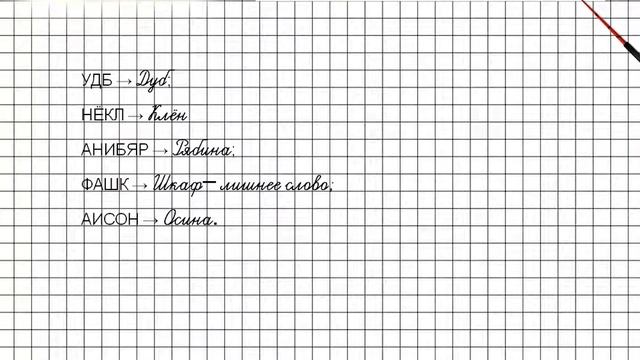 УДБ → Дуб;
НЁКЛ → Клён
АНИБЯР → Рябина;
ФАШК → Шкаф – лишнее слово;
АИСОН → Осина.